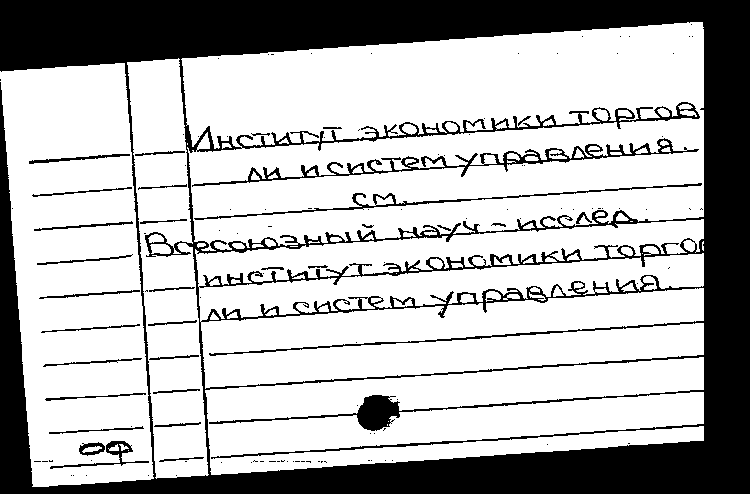 Институт экономики торгов-
ли и систем управления.
см.
Всесоюзный науч-исслед.
институт экономики торгов
ли и систем управления.
оф